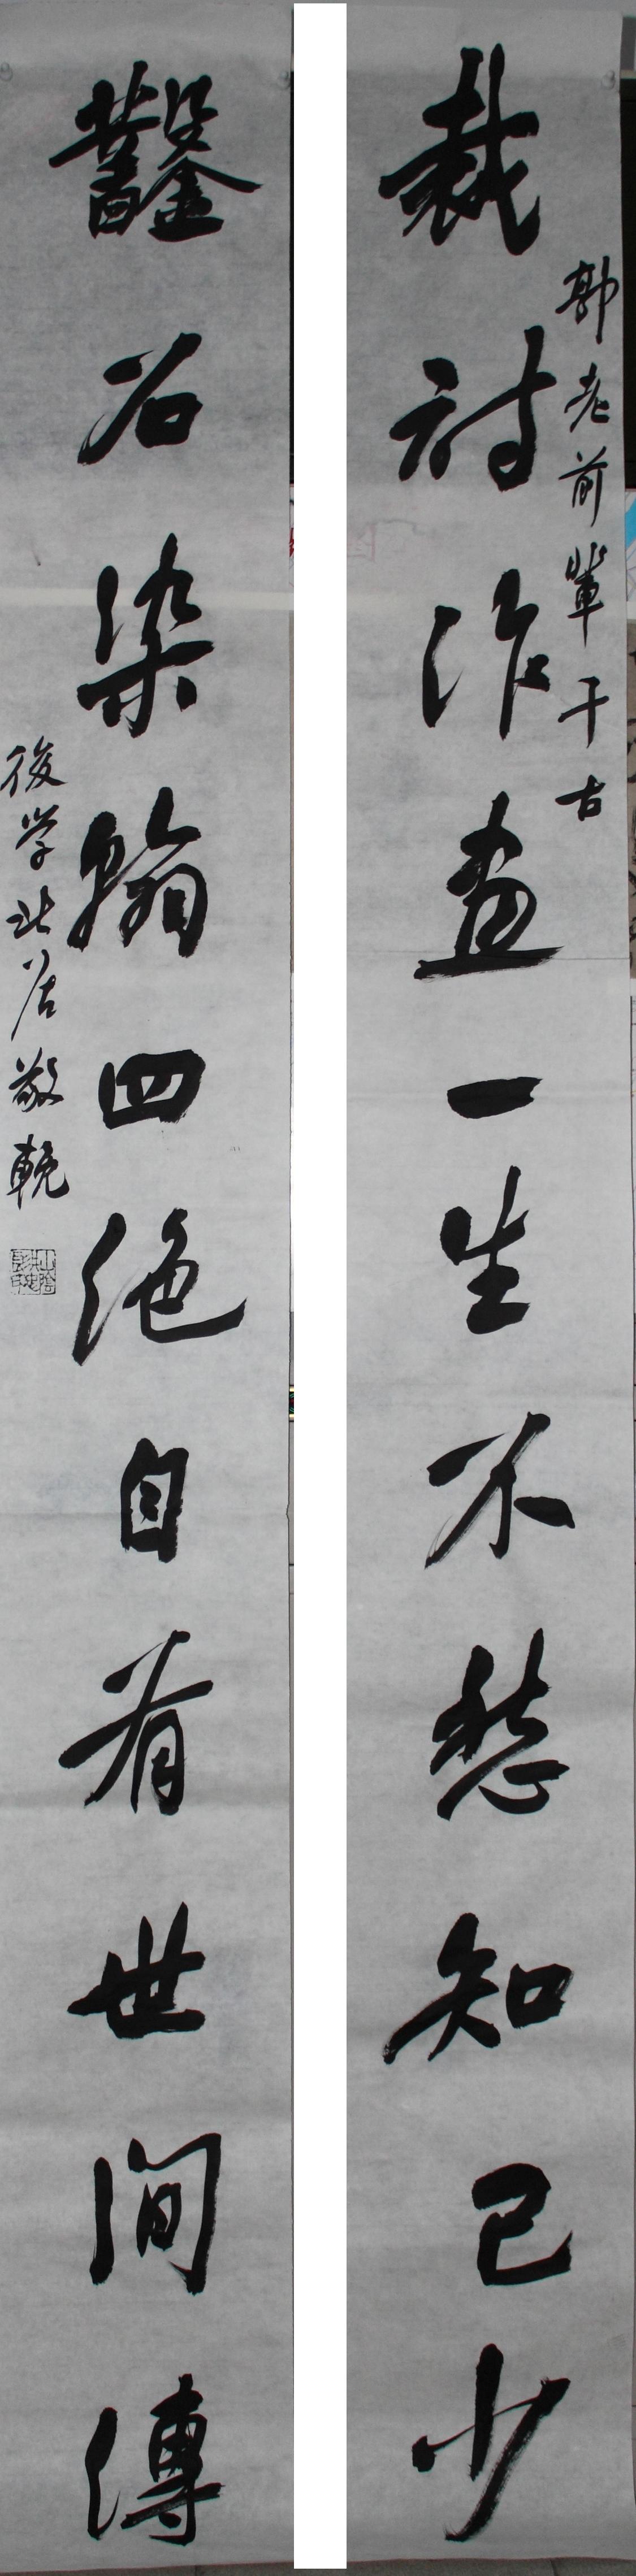 裁詩作畫一生不愁知己少
老前輩千古
鑿石染翰四絕自有世間傳
後学北居敬輓